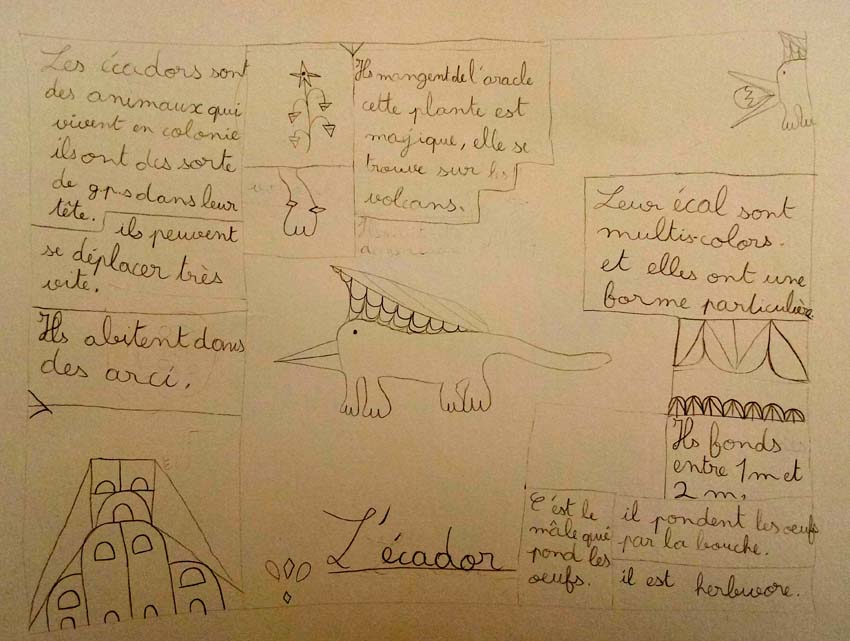 Les écadors sont
des animaux qui
vivent en colonie
ils ont des sorte
de g.p.s dans leur
tête.
ils peuvent
se déplacer très
vite.
Ils abitent dans
des arci.
Ils mangent de l'aracle
cette plante est
majique, elle se
trouve sur
volcans.
Leur écal sont
multis-colors.
et elles ont une
forme particulière
Ils fonds
entre 1m et
2 m.
L'écador
C'est le
mâle qui
pond les
oeufs.
il pondent les oeufs
par la bouche.
il est herbivore.